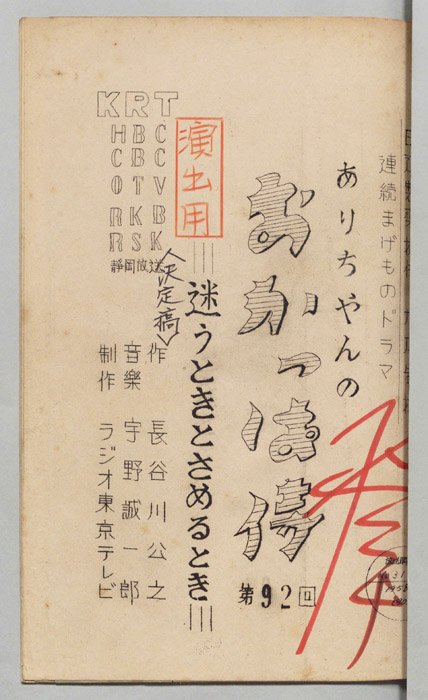 連続まげものドラマ
ありちやんの
おかっぱ侍
第92回
迷うときとさめるとき
(決定稿)
演出用
KRT
HBC
CBC
OTV
RKB
RSK
静岡放送
作 長谷川公之
音樂 宇野誠一郎
制作 ラジオ東京テレビ